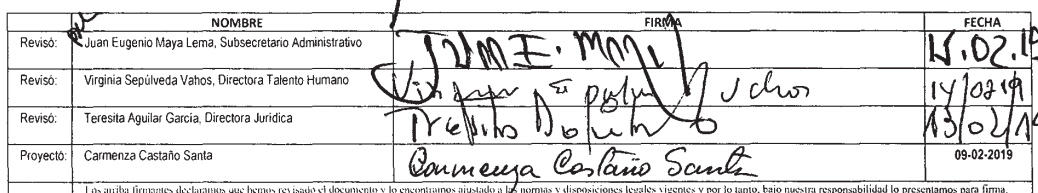 NOMBRE FIRMA FECHA
Revisó: Juan Eugenio Maya Lema, Subsecretario Administrativo JUAN E. MAYA 15.02.19
Revisó: Virginia Sepúlveda Vahos, Directora Talento Humano Virginia Sepúlveda Vahos 14/02/19
Revisó: Teresita Aguilar García, Directora Jurídica Teresita Aguilar G 13/02/19
Proyectó: Carmenza Castaño Santa Carmenza Castaño Santa 09-02-2019
Los arriba firmantes declaramos que hemos revisado el documento y lo encontramos ajustado a las normas y disposiciones legales vigentes y por lo tanto, bajo nuestra responsabilidad lo presentamos para firma.